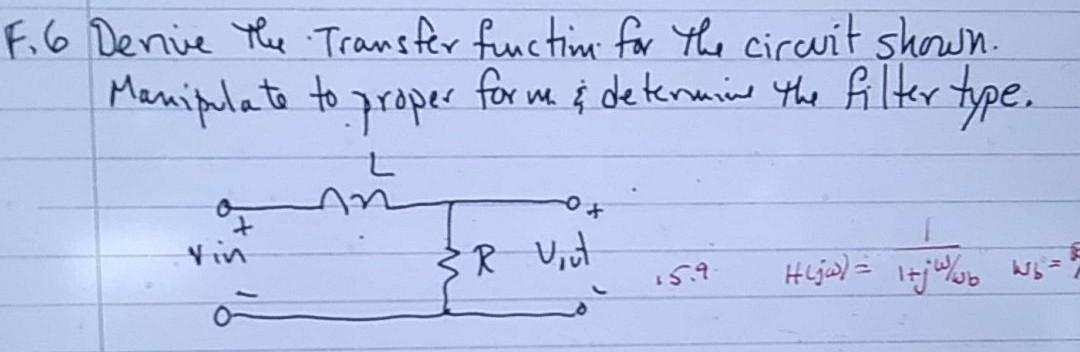 F.6 Derive the Transfer function for the circuit shown.
Manipulate to proper form & determine the filter type.
L
+ +
Vin R Vout
- -
.5.9 H(jω) = 1/(1+jω/ωb) ωb = R/